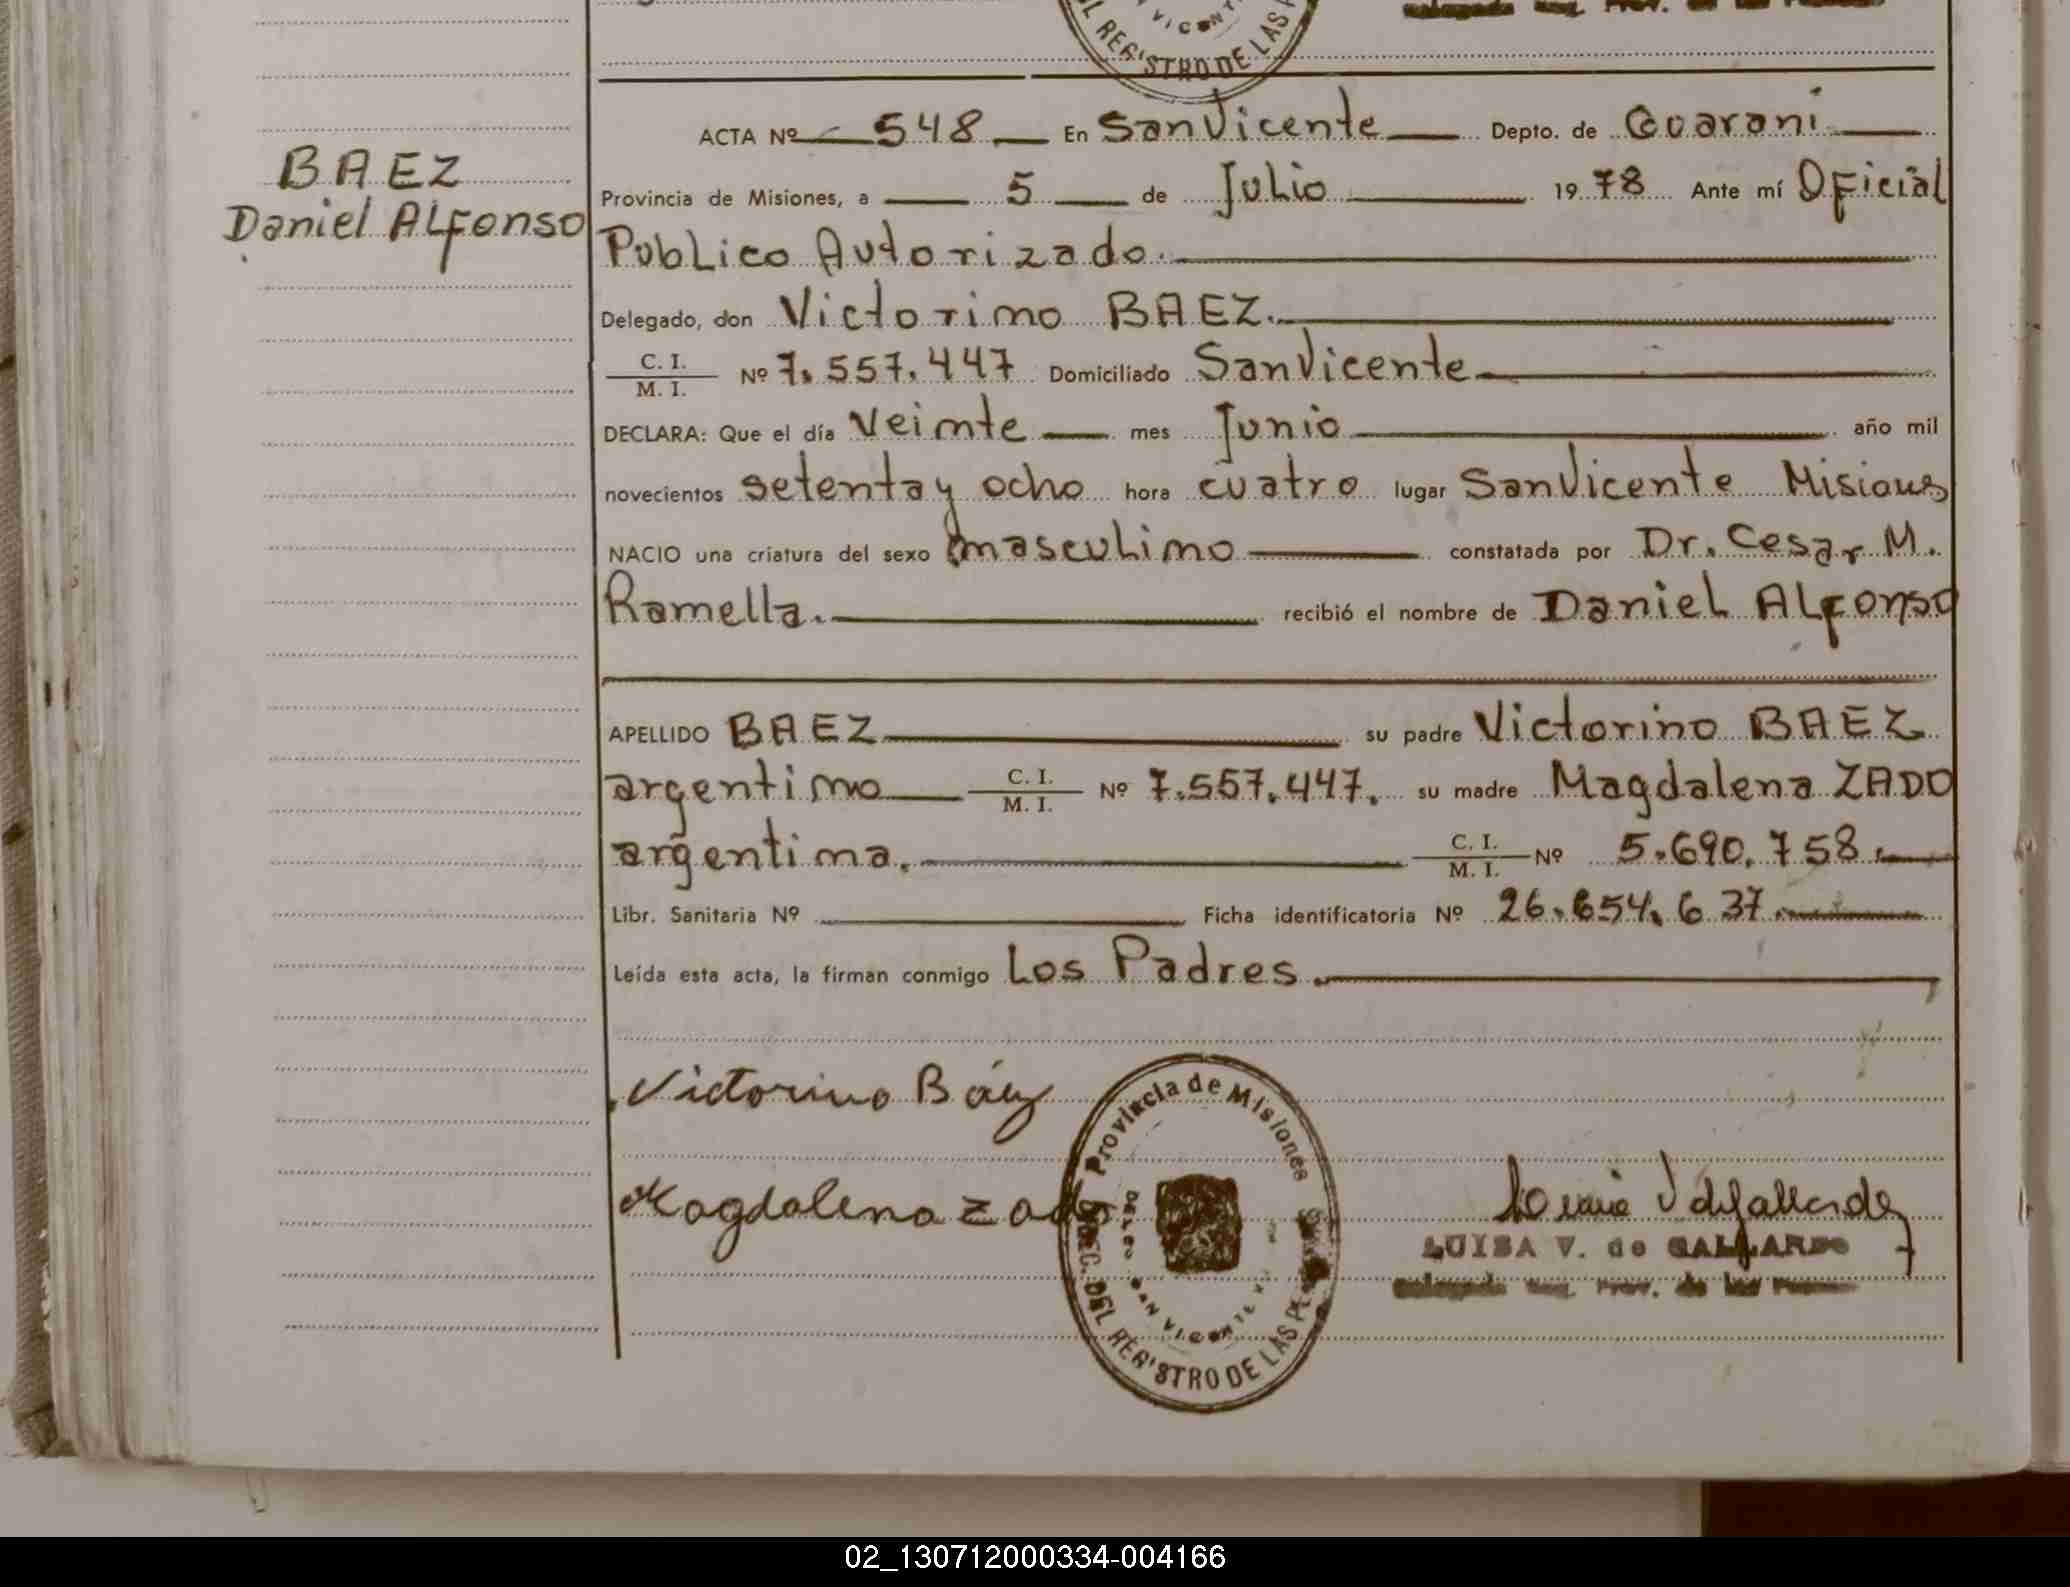 BAEZ
Daniel Alfonso
ACTA Nº 548 En San Vicente Depto. de Guarani
Provincia de Misiones, a 5 de Julio 1978 Ante mí Oficial
Publico Autorizado.
Delegado, don Victorino BAEZ.
C. I.
M. I. Nº 7.557.447 Domiciliado San Vicente
DECLARA: Que el día Veinte mes Junio año mil
novecientos setenta y ocho hora cuatro lugar San Vicente Misiones
NACIO una criatura del sexo masculino constatada por Dr. Cesar M.
Ramella. recibió el nombre de Daniel Alfonso
APELLIDO BAEZ su padre Victorino BAEZ
argentino C. I. M. I. Nº 7.557.447. su madre Magdalena ZADO
argentina. C. I. M. I. Nº 5.690.758.
Libr. Sanitaria Nº Ficha identificatoria Nº 26.654.637.
Leída esta acta, la firman conmigo Los Padres.
Victorino Báez
Magdalena Zado
Provincia de Misiones
DEL REGISTRO DE LAS
SAN VICENTE
LUISA V. de GALLARDO
Delegada Reg. Prov. de las Personas
02_130712000334-004166